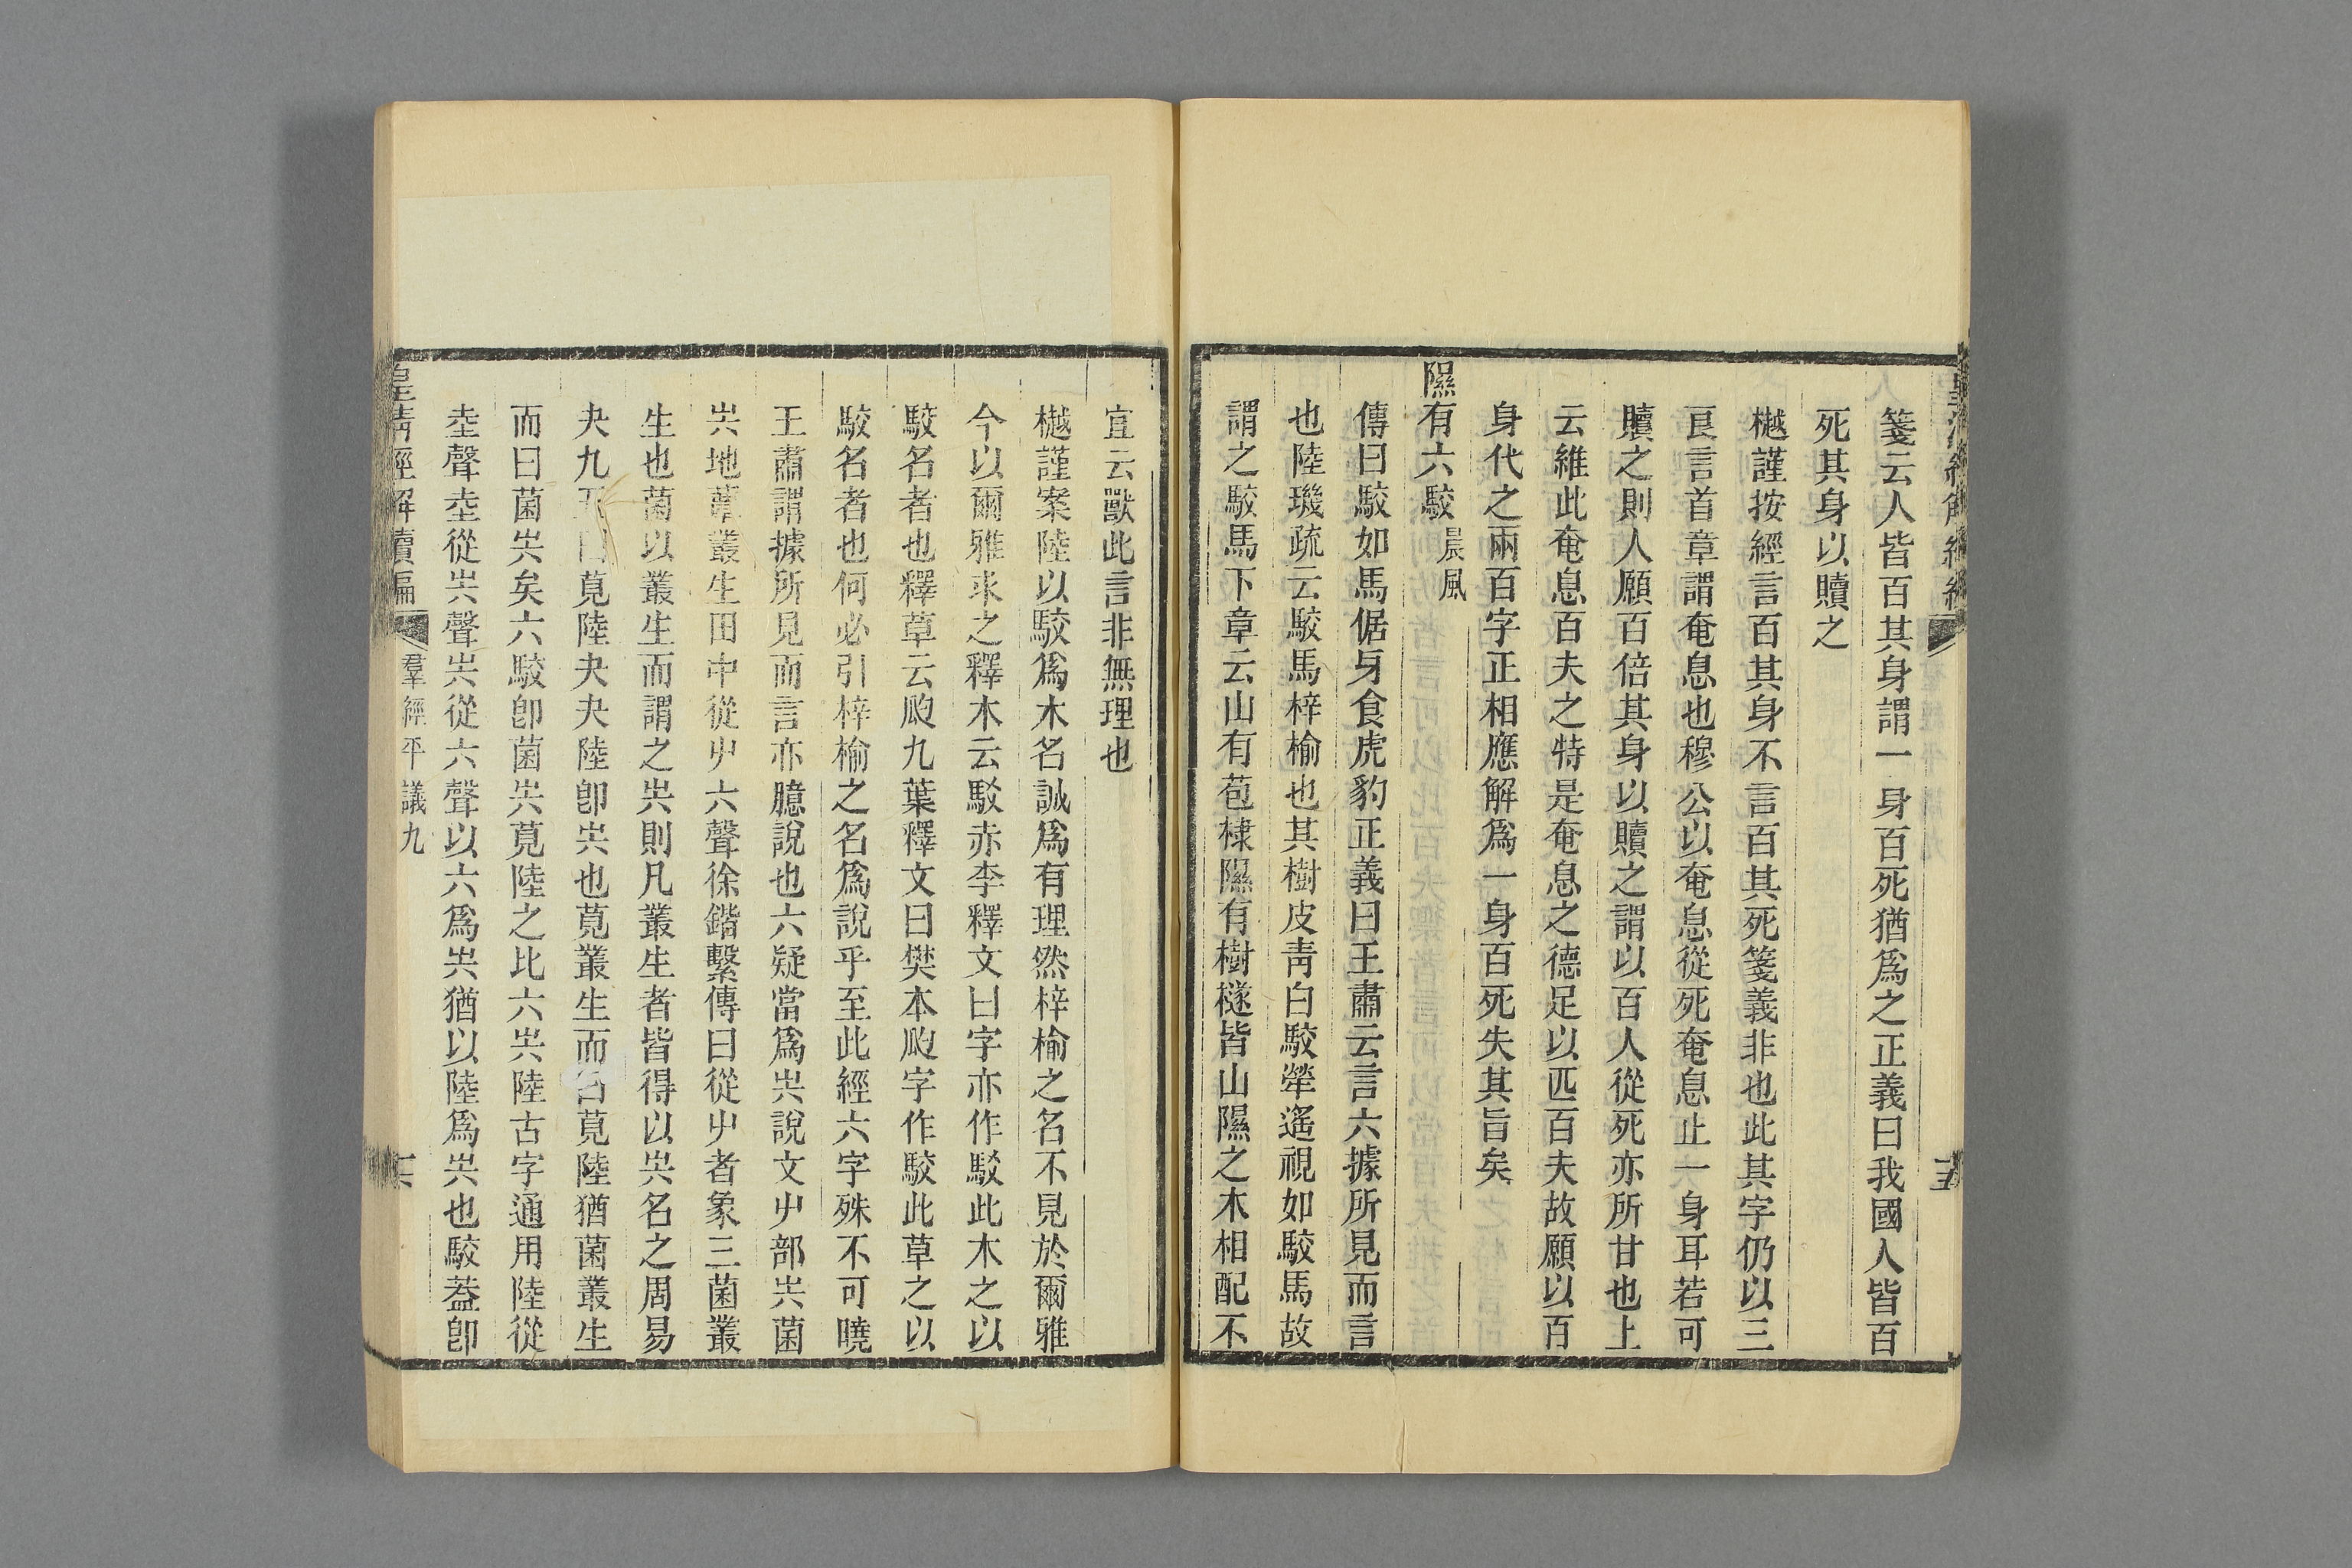 箋云人皆百其身謂一身百死猶爲之正義曰我國人皆百
死其身以贖之
樾謹按經言百其身不言百其死箋義非也此其字仍以三
良言首章謂奄息也穆公以奄息從死奄息止一身耳若可
贖之則人願百倍其身以贖之謂以百人從死亦所甘也上
云維此奄息百夫之特是奄息之德足以匹百夫故願以百
身代之兩百字正相應解爲一身百死失其旨矣
隰有六駮晨風
傳曰駮如馬倨牙食虎豹正義曰王肅云言六據所見而言
也陸璣疏云駮馬梓榆也其樹皮靑白駮犖遙視如駮馬故
謂之駮馬下章云山有苞棣隰有樹檖皆山隰之木相配不
宜云獸此言非無理也
樾謹案陸以駮爲木名誠爲有理然梓榆之名不見於爾雅
今以爾雅求之釋木云駁赤李釋文曰字亦作駮此木之以
駮名者也釋草云瓝九葉釋文曰樊本瓝字作駮此草之以
駮名者也何必引梓榆之名爲說乎至此經六字殊不可曉
王肅謂據所見而言亦臆說也六疑當爲圥說文屮部圥菌
圥地蕈叢生田中從屮六聲徐鍇繫傳曰從屮者象三菌叢
生也菌以叢生而謂之圥則凡叢生者皆得以圥名之周易
夬九五曰莧陸夬夬陸卽圥也莧叢生而曰莧陸猶菌叢生
而曰菌圥矣六駮卽菌圥莧陸之比六圥陸古字通用陸從
坴聲坴從圥聲圥從六聲以六爲圥猶以陸爲圥也駮葢卽
皇淸經解續編
羣經平議九